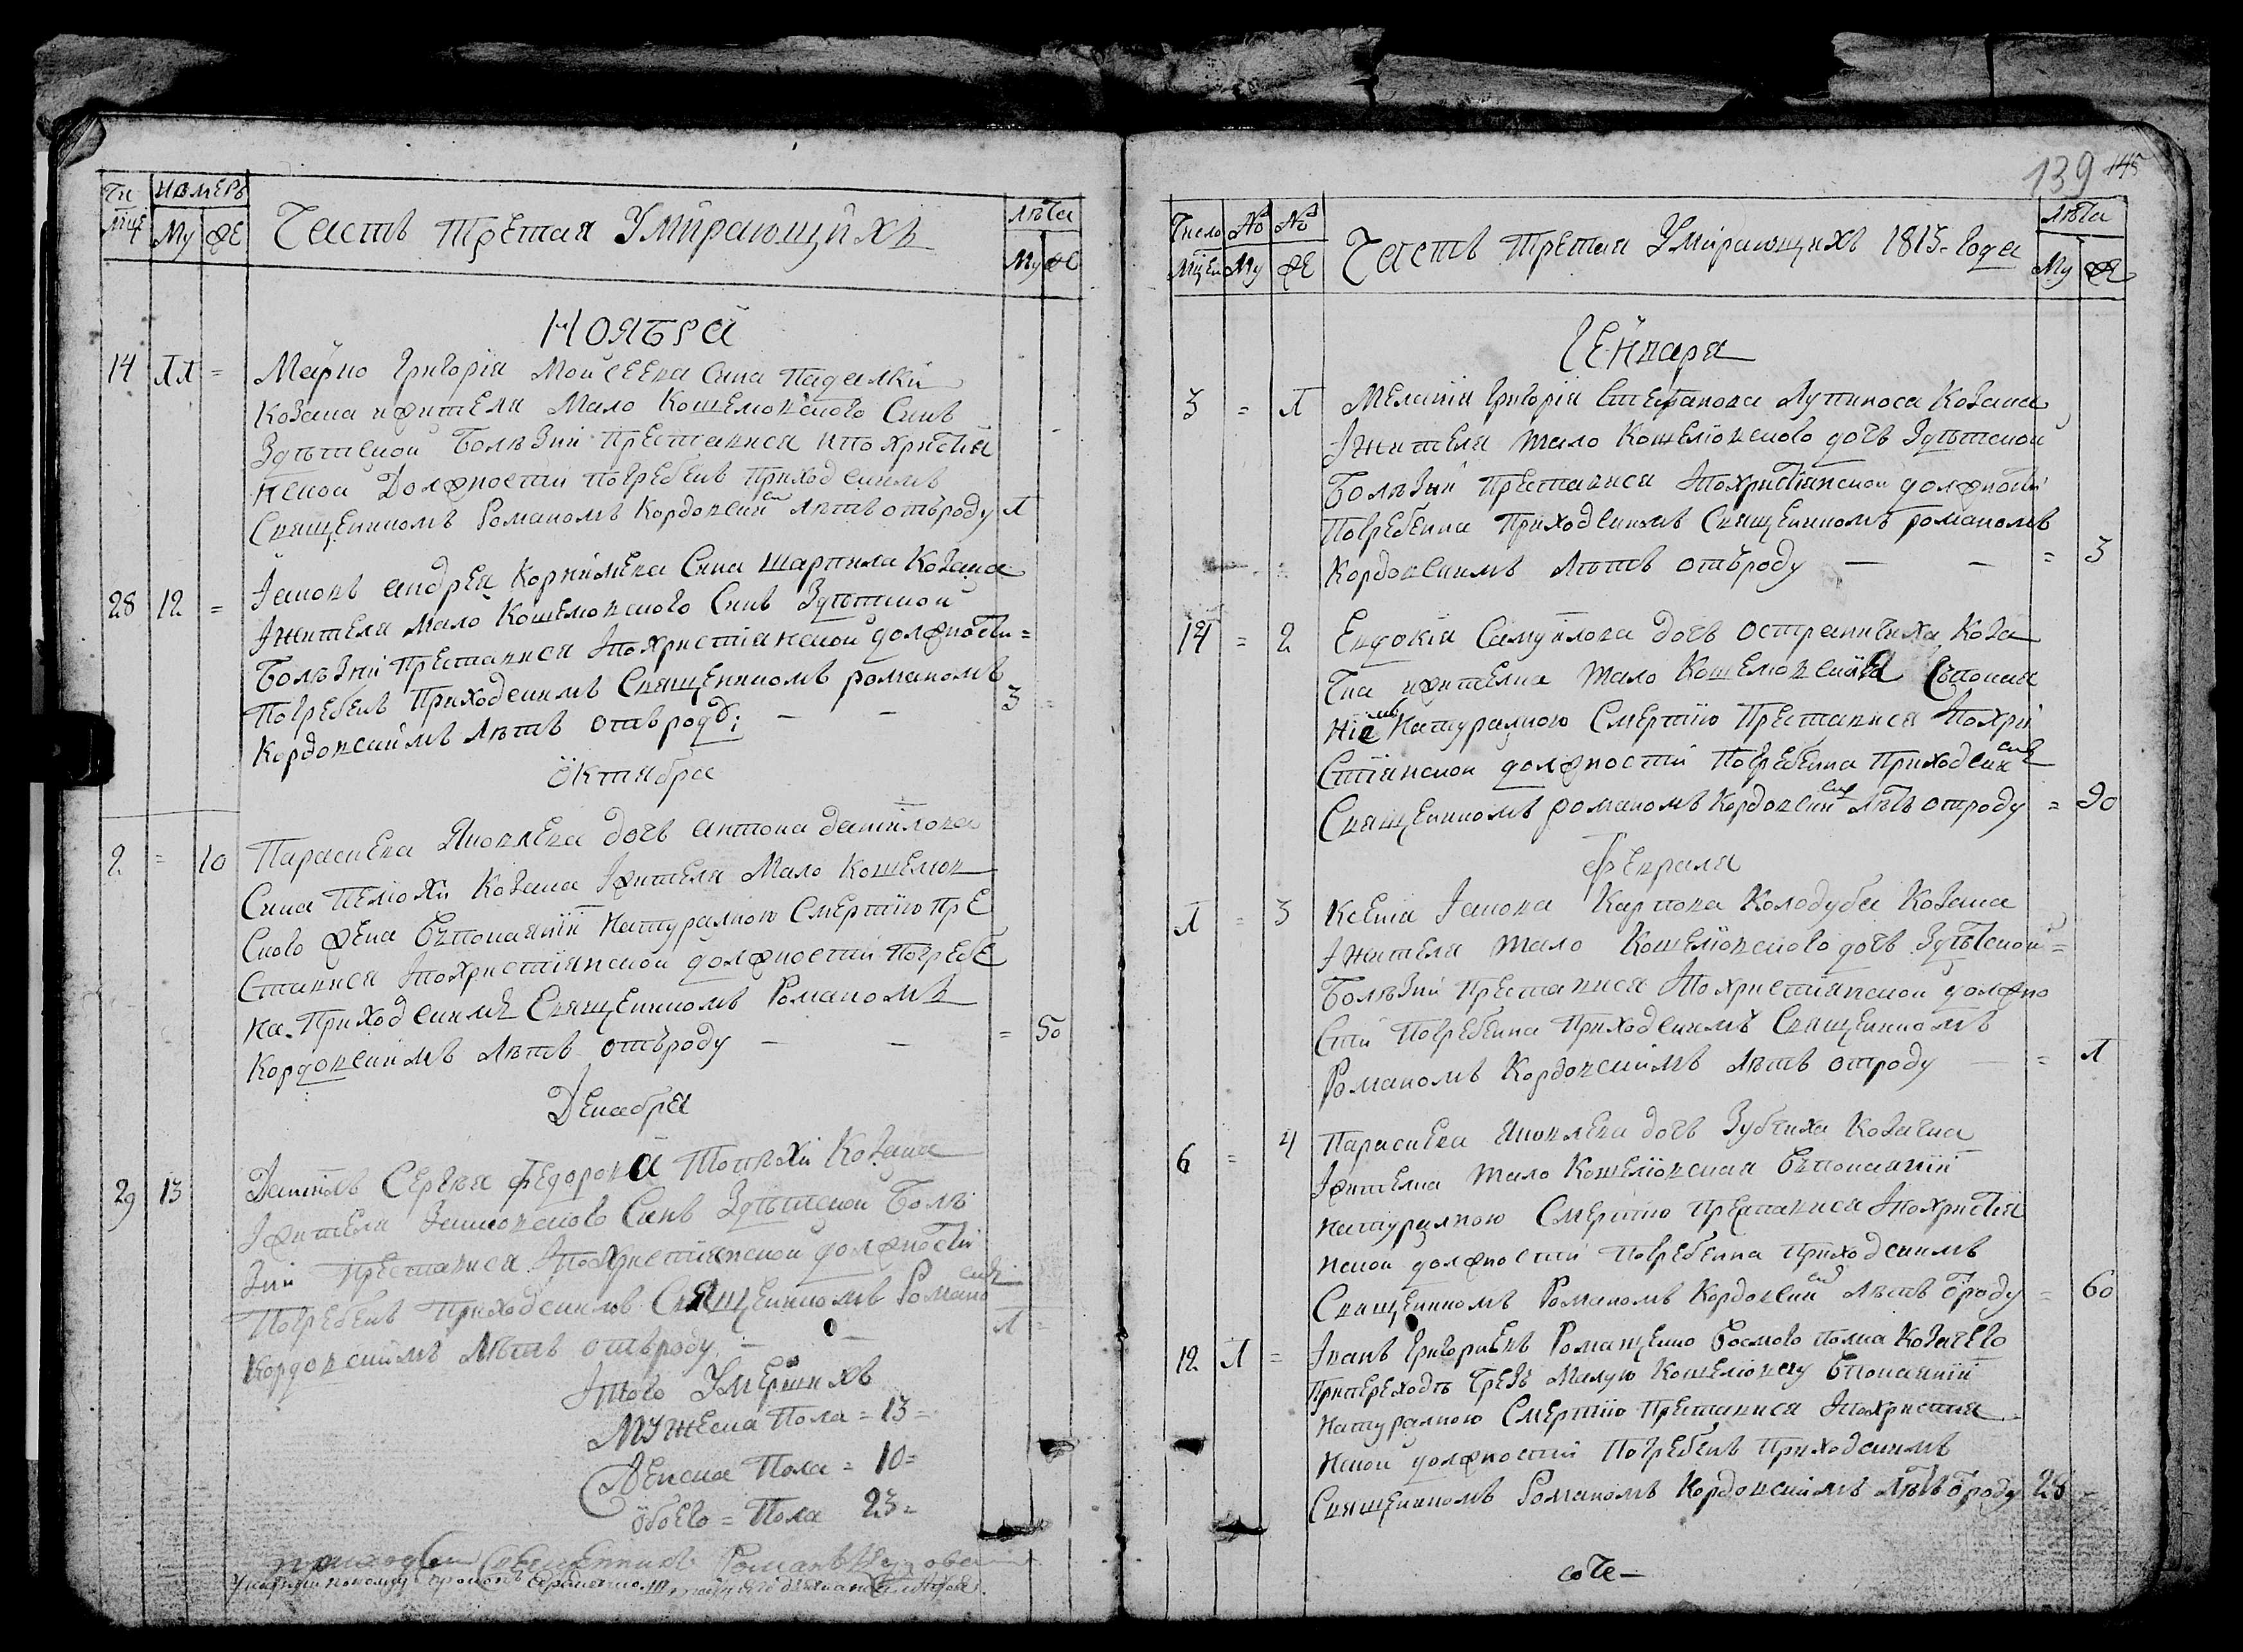 Чи номеръ
мце Му Фе Часть третая Умирающихъ лѣта
Му Фе
Ноября
14 11 = Марко Григорія Мойсеева сина Падалки
козака жителя Мало Кошелювского синъ
Здѣтской болѣзни преставися и по христия
нской должности погребенъ приходскимъ
Священикомъ Романомъ Кордовским лѣтъ отъроду 1
28 12 = Іаковъ андрея Корнилиева сина Шарпила козака
Жителя Мало Кошелювского синъ Здѣтской
болѣзни преставися Ипохристіанской должности =
погребенъ приходскимъ Священикомъ романомъ
Кордовскимъ лѣтъ отъроду: — — 3 =
Октября
2 = 10 Параскева Яковлева дочь антона данилова
сина козака Жителя Мало Кошелюв
ского жена Споканіи натуралною Смертію пре
ставися Ипохристіянской должности погребе
на. Приходскимъ Священикомъ Романомъ
Кордовскимъ лѣтъ отъроду — — = 50
Декабря
29 13 Данилъ Сергѣя Федорова Козака
Жителя синъ Здѣтской болѣ
зни преставися Ипохристиянской должности
погребенъ приходскимъ Священикомъ Романо
Кордовскимъ лѣтъ отъроду. — — 1 =
Итого Умершихъ
Мужеска Пола = 13 =
Женска Пола = 10 =
Обоего = Пола 23 =
приходски Священникъ Романъ

139 145
Число № № лѣта
Мцей Му Фе Часть третая Умирающихъ 1813. года Му Фе
Генваря
3 = 1 Меланія Григорія Стефанова Лупиноса козака
Жителя Мало Кошелювского дочь Здѣтской
болѣзни преставися Ипохристіанской должности
погребенна приходскимъ Священикомъ романомъ
Кордовскимъ лѣтъ отъроду — — = 3
14 = 2 Евдокія Самуйлова дочь Остраничиха Коза
чка жителка Мало Кошелювская Спокая
ніемъ натуралною Смертію преставися Ипохри
стіянской должности погребенна приходским
Священикомъ романомъ Кордовским лѣтъ отроду = 90
Февраля
1 = 3 Ксенія Іакова Карпова Колодуба козака
Жителя Мало Кошелювского дочь Здѣтской =
болѣзни преставися Ипохристиянской должно
сти погребенна приходскимъ Священикомъ
Романомъ Кордовскимъ лѣтъ отроду — = 1
6 = 4 Параскева Яковлева дочь Зубчиха козачка
Жителка Мало Кошелювская Споканіи
натуралною Смертію преставися Ипохристия
нской должности погребенна приходскимъ
Священикомъ Романомъ Кордовским лѣтъ ѿроду = 60
12 1 = Іванъ Григориевъ Романенко Босмого полка козачего
припереходѣ чрезъ Малую Кошелювку Споканіи
натуралною Смертію преставися Ипохристия
нской должности погребенъ приходскимъ
Священикомъ Романомъ Кордовскимъ лѣтъ ѿроду 28 =